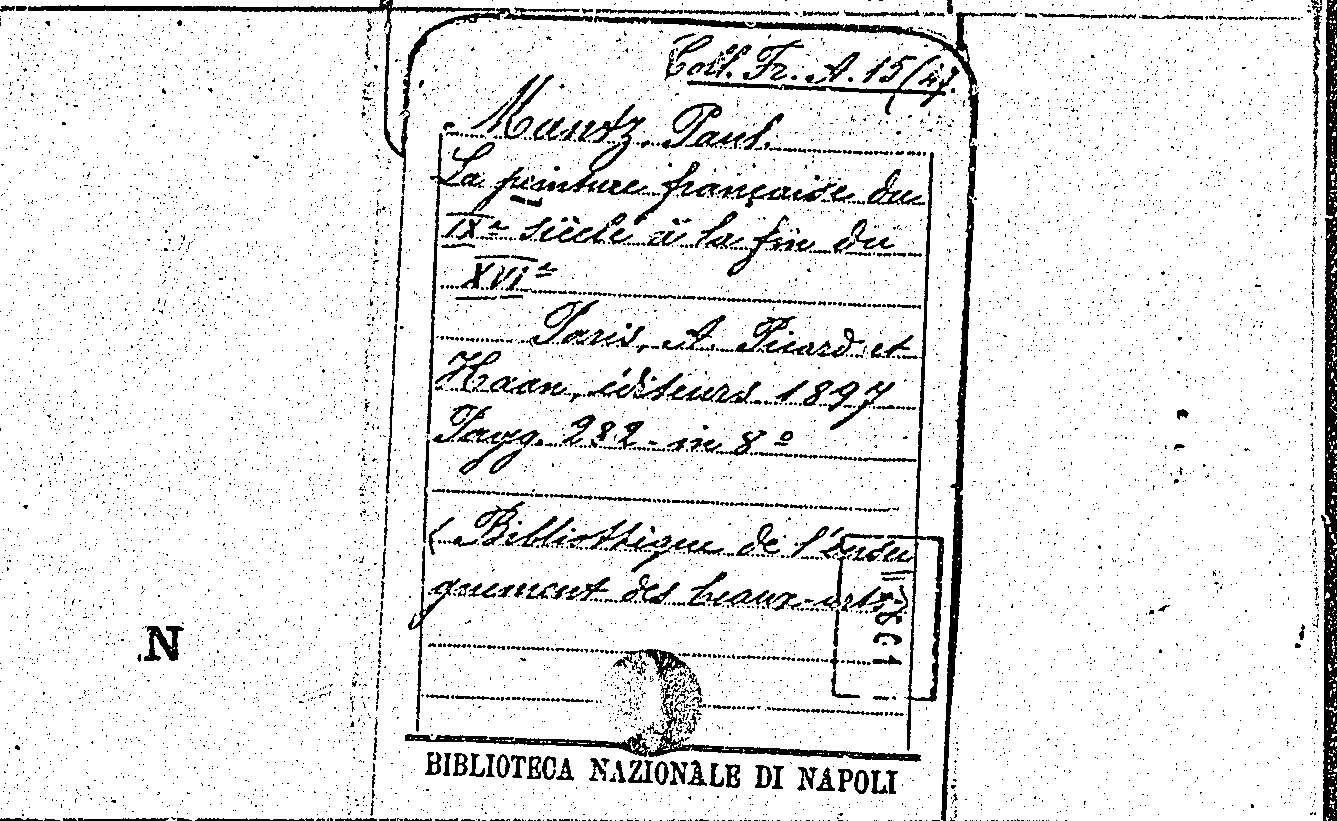 Coll. Fr. A. 15/(47.
Mantz, Paul.
La peinture française du
IXe siècle à la fin du
XVIe
Paris, A. Picard et
Kaan, éditeurs 1897
Pagg. 282 - in 8º
(Bibliothèque de l'ensei
gnement des beaux-arts)
N
BIBLIOTECA NAZIONALE DI NAPOLI